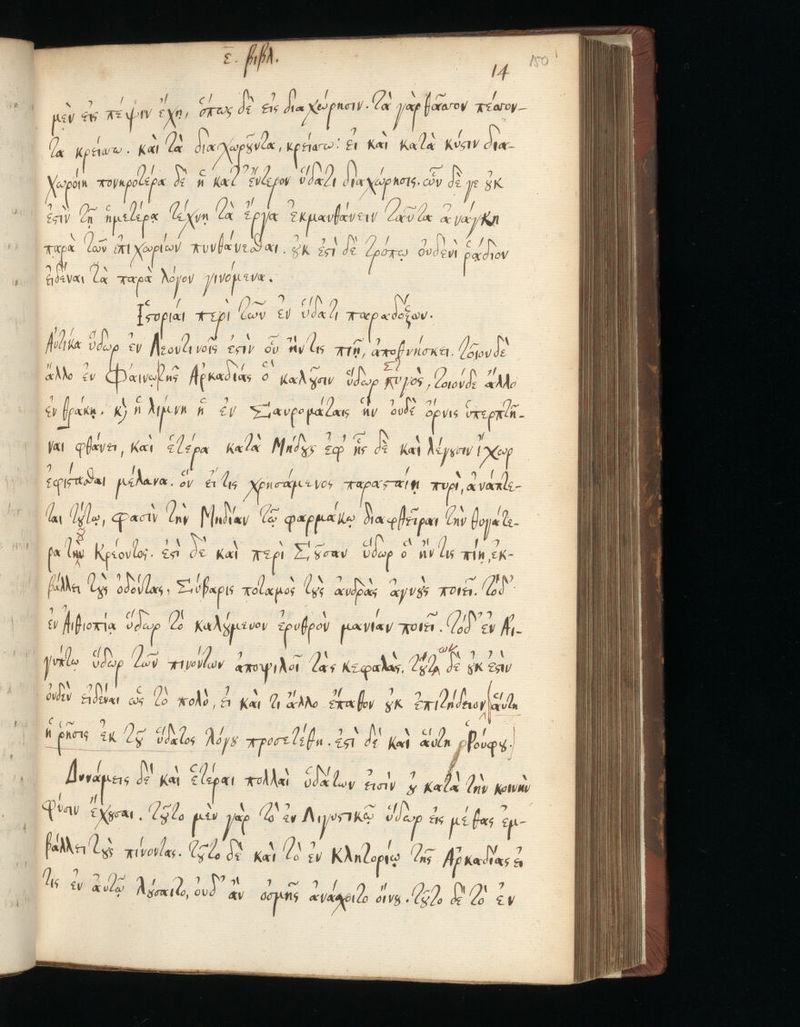 ε. βιβλ.
14 150
μὲν εἰς πέψιν ἔχῃ, ὅπως δὲ εἰς διαχώρησιν. τὰ γὰρ θᾶττον πέττον-
τα κρείττω. καὶ τὰ διαχωροῦντα, κρείττω: εἰ καὶ κατὰ κύστιν δια-
χωροίη πονηροτέρα δὲ ἡ κατ' ἔντερον ὕδατι διαχώρησις. ὧν δέ γε οὐκ
ἐστὶν τῇ ἡμετέρᾳ τέχνῃ τὰ ἔργα ἐκμανθάνειν ταῦτα ἀνάγκη
παρὰ τῶν ἐπιχωρίων πυνθάνεσθαι. οὐκ ἐστὶ δὲ τρόπῳ οὐδενὶ ῥάδιον
εἰδέναι τὰ παρὰ λόγον γινόμενα.
Ἱστορίαι περὶ τῶν ἐν ὕδατι παραδόξων.
Αὐτίκα ὕδωρ ἐν Λεοντίνοις ἐστὶν οὗ ἤν τις πίῃ, ἀποθνήσκει. τοῖον δὲ
ἄλλο ἐν Φαινῷ τῆς Ἀρκαδίας ὃ καλοῦσιν ὕδωρ στυγὸς, τοιόνδε ἄλλο
ἐν θράκῃ. καὶ ἡ λίμνη ἡ ἐν Σαυρομάταις ἣν οὐδὲ ὄρνις ὑπερπτῆ-
ναι φθάνει, καὶ ἑτέρα κατὰ Μήδους ἐφ' ἧς δὲ καὶ λέγουσιν ἴχωρ
ἐφίστασθαι μέλανα. ὃν εἴ τις χρησάμενος παρασταίη πυρὶ, ἀνάπτε-
ται τούτῳ, φασὶν τὴν Μηδίαν τῷ φαρμάκῳ διαφθεῖραι τὴν θυγατέ-
ρα τὴν Κρέοντος. ἐστὶ δὲ καὶ περὶ Σοῦσαν ὕδωρ ὃ ἤν τις πίῃ, ἐκ-
βάλλει τοὺς ὀδόντας, Σύβαρις ποταμὸς τοὺς ἀνδρὰς ἀγνοὺς ποιεῖ. τὸ δ'
ἐν Αἰθιοπίᾳ ὕδωρ τὸ καλούμενον ἐρυθρὸν μανίαν ποιεῖ. τὸ δ' ἐν Αἰ-
γύπτῳ ὕδωρ τῶν πινόντων ἀποψιλοῖ τὰς κεφαλὰς. δὲ οὐκ ἐστὶν
οὐδὲν εἰδέναι ὡς τὸ πολὺ, εἰ καὶ τι ἄλλο ἔπαθον οὐκ ἐπιτήδειον αὕτη
ἡ ῥῆσις ἐκ τοῦ ὕδατος λόγου προσετέθη. ἐστὶ δὲ καὶ αὕτη Ῥούφου.
Δυνάμεις δὲ καὶ ἑτέραι πολλαὶ ὑδάτων εἰσὶν οὐ κατὰ τὴν κοινὴν
φύσιν ἔχουσαι. τοῦτο μὲν γὰρ τὸ ἐν Λιγυστικῷ ὕδωρ εἰς μέθας ἐμ-
βάλλει τοὺς πίνοντας. τοῦτο δὲ καὶ τὸ ἐν Κλητορίῳ τῆς Ἀρκαδίας εἰ
τις ἐν αὐτῷ λούσαιτο, οὐδ' ἂν ὀσμῆς ἀνάσχοιτο οἴνου. τοῦτο δὲ τὸ ἐν